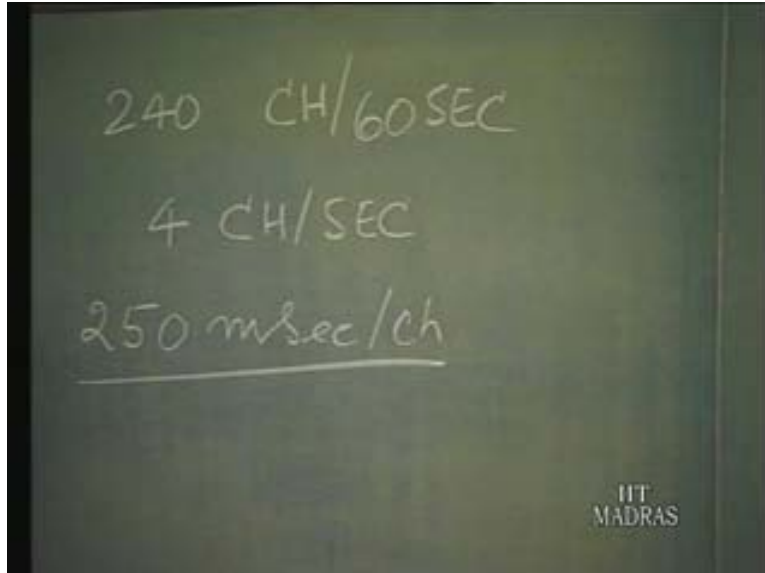 240 CH/60SEC
4 CH/SEC
250 msec/ch
IIT
MADRAS